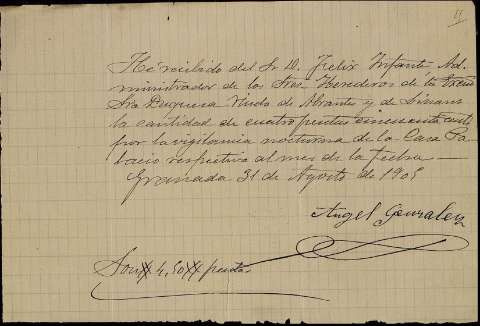 11
He recibido del Sr. D. Felix Infante, Ad-
ministrador de los Sres. Herederos de la Excma
Sra Duquesa Viuda de Abrantes y de Linares
la cantidad de cuatro pesetas cincuenta cents
por la vigilancia nocturna de la Casa Pa-
lacio respectiva al mes de la fecha —
Granada 31 de Agosto de 1905
Angel Gonzalez
Son 4,50 pesetas